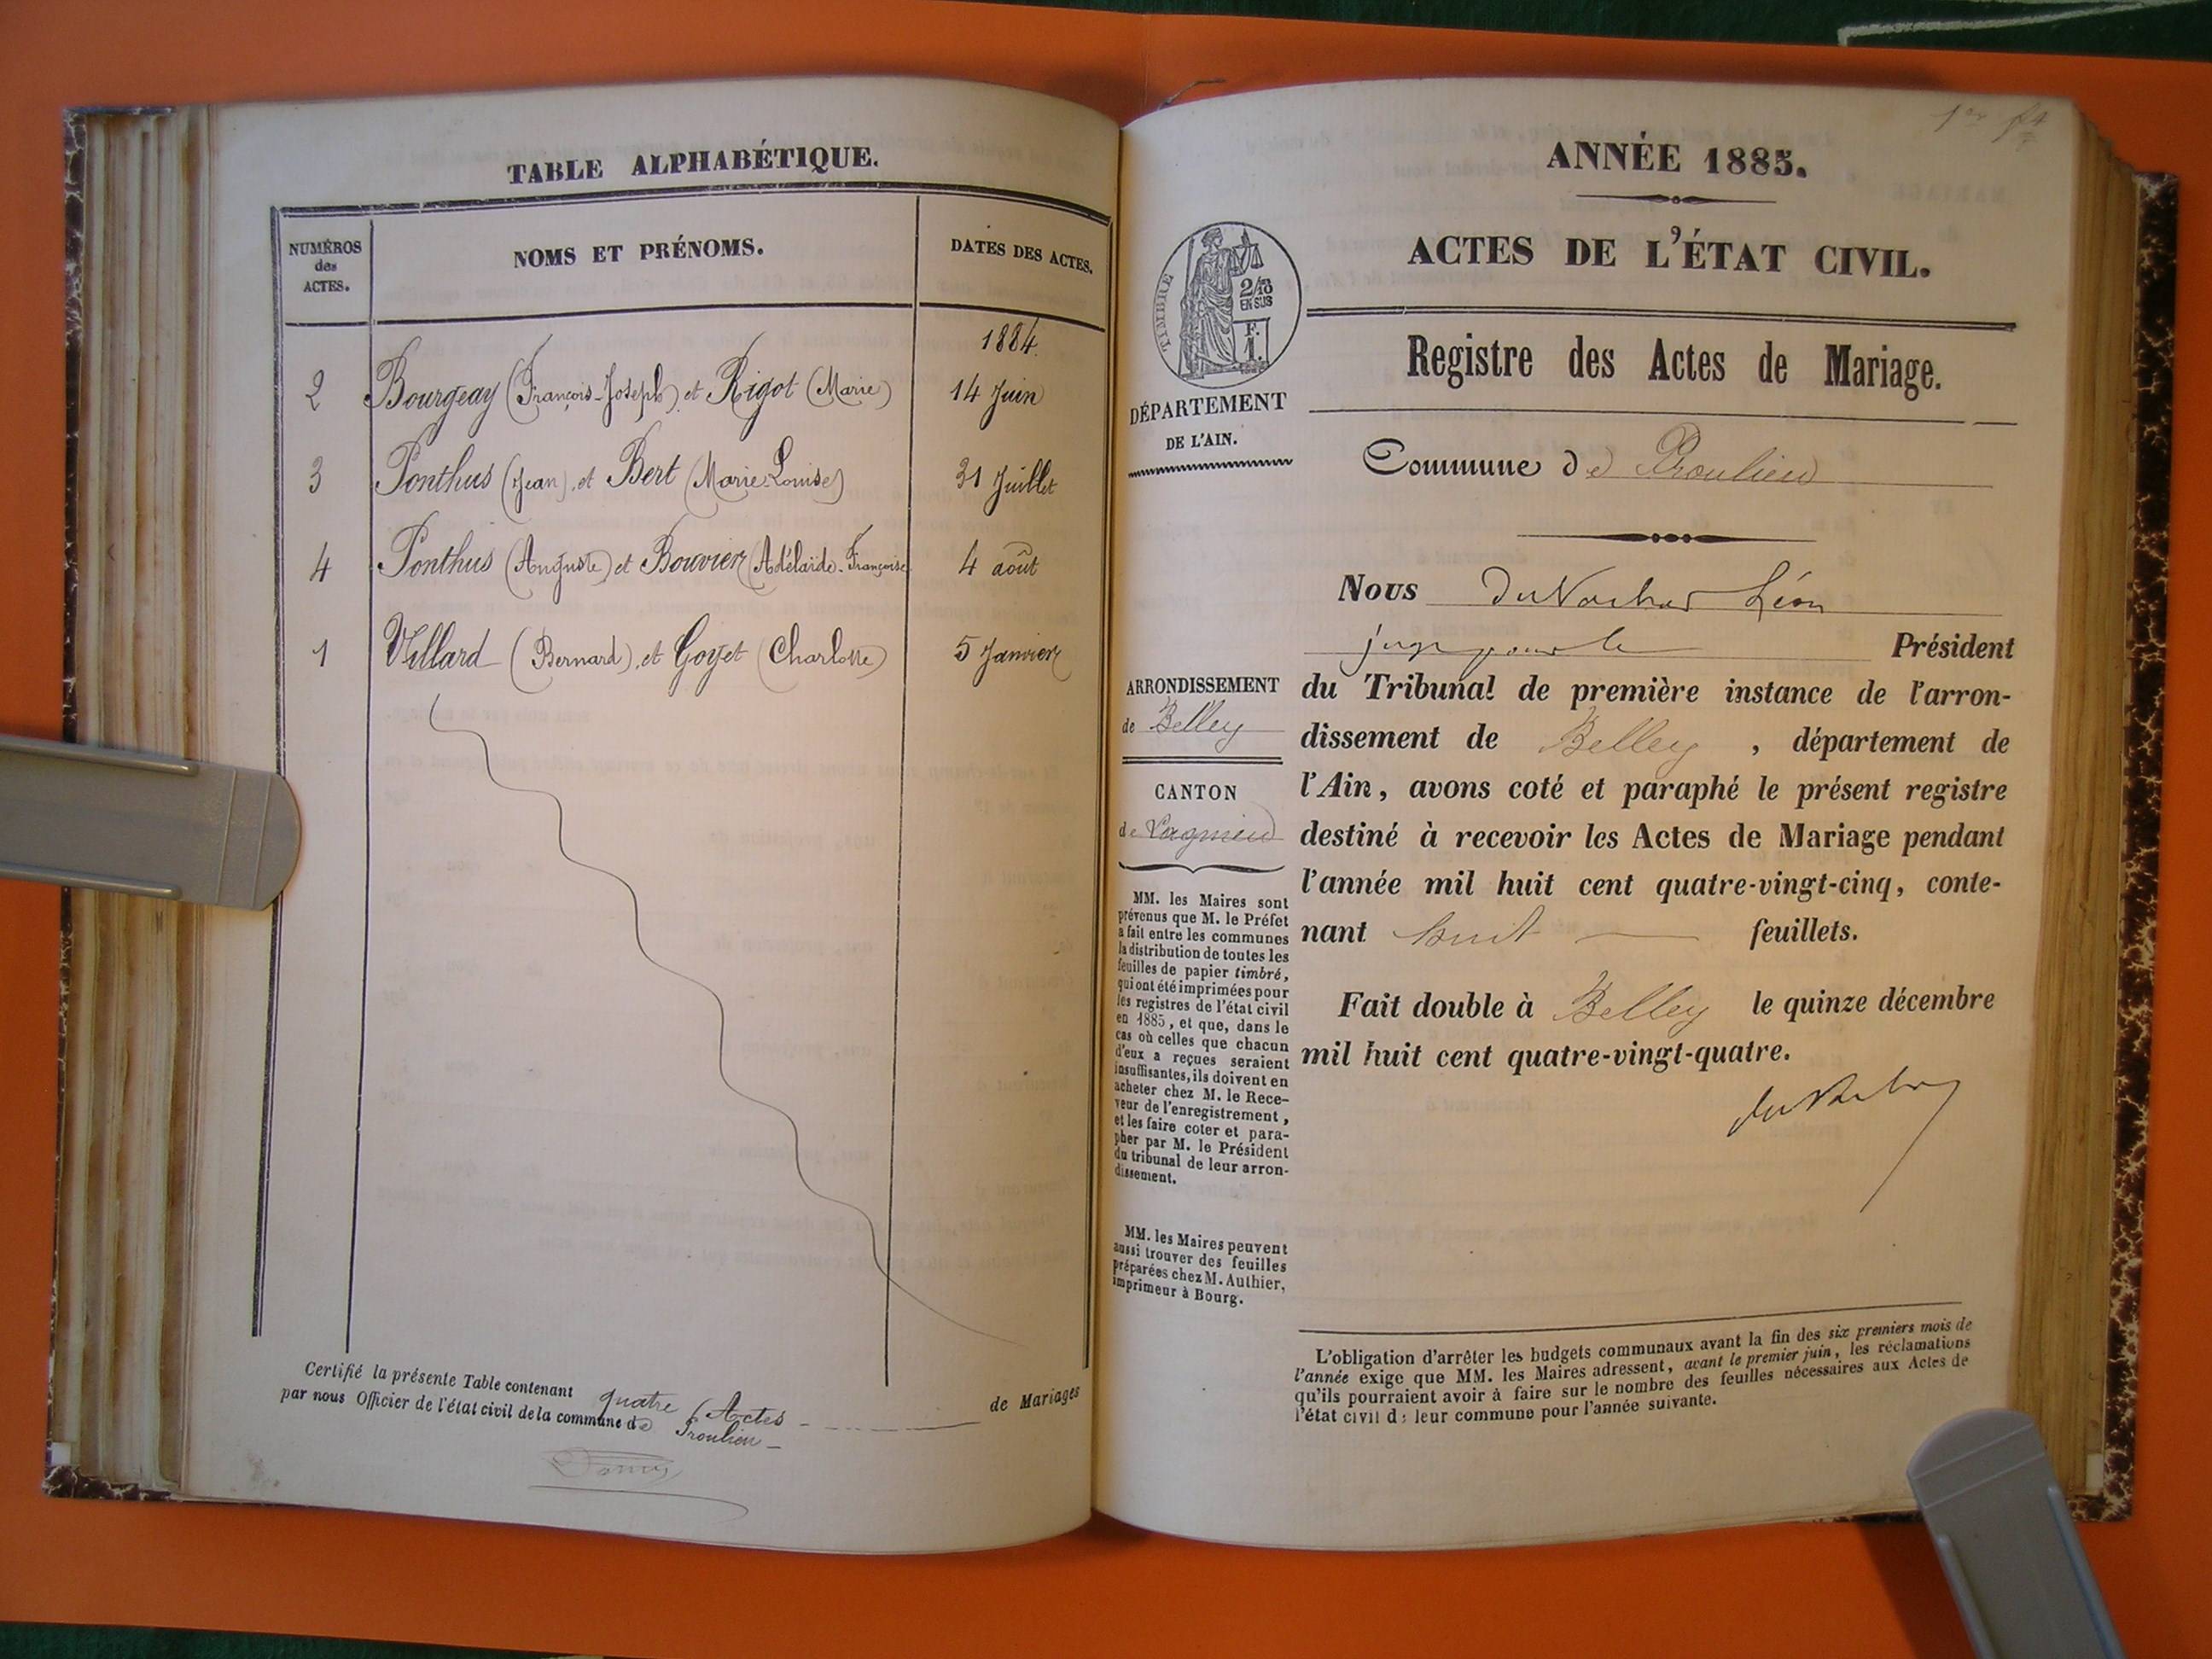 TABLE ALPHABÉTIQUE.
NUMÉROS
des
ACTES.
NOMS ET PRÉNOMS.
DATES DES ACTES.
1884.
2 Bourgeay (François-Joseph) et Rigot (Marie) 14 Juin
3 Ponthus (Jean), et Bert (Marie-Louise) 31 Juillet
4 Ponthus (Auguste) et Bouvier (Adélaïde-Françoise 4 août
1 Villard (Bernard), et Goyet (Charlotte) 5 Janvier
Certifié la présente Table contenant quatre Actes de Mariages
par nous Officier de l'état civil de la commune de Proulieu
1er
ANNÉE 1885.
ACTES DE L'ÉTAT CIVIL.
TIMBRE
2/10
EN SUS
F.
1.
Registre des Actes de Mariage.
DÉPARTEMENT
DE L'AIN.
Commune de Proulieu
Nous Léon
juge pour le Président
du Tribunal de première instance de l'arron-
dissement de Belley, département de
l'Ain, avons coté et paraphé le présent registre
destiné à recevoir les Actes de Mariage pendant
l'année mil huit cent quatre-vingt-cinq, conte-
nant huit feuillets.
Fait double à Belley le quinze décembre
mil huit cent quatre-vingt-quatre.
ARRONDISSEMENT
de Belley
CANTON
de Lagnieu
MM. les Maires sont
prévenus que M. le Préfet
a fait entre les communes
la distribution de toutes les
feuilles de papier timbré,
qui ont été imprimées pour
les registres de l'état civil
en 1885, et que, dans le
cas où celles que chacun
d'eux a reçues seraient
insuffisantes, ils doivent en
acheter chez M. le Rece-
veur de l'enregistrement,
et les faire coter et para-
pher par M. le Président
du tribunal de leur arron-
dissement.
MM. les Maires peuvent
aussi trouver des feuilles
préparées chez M. Authier,
imprimeur à Bourg.
L'obligation d'arrêter les budgets communaux avant la fin des six premiers mois de
l'année exige que MM. les Maires adressent, avant le premier juin, les réclamations
qu'ils pourraient avoir à faire sur le nombre des feuilles nécessaires aux Actes de
l'état civil de leur commune pour l'année suivante.